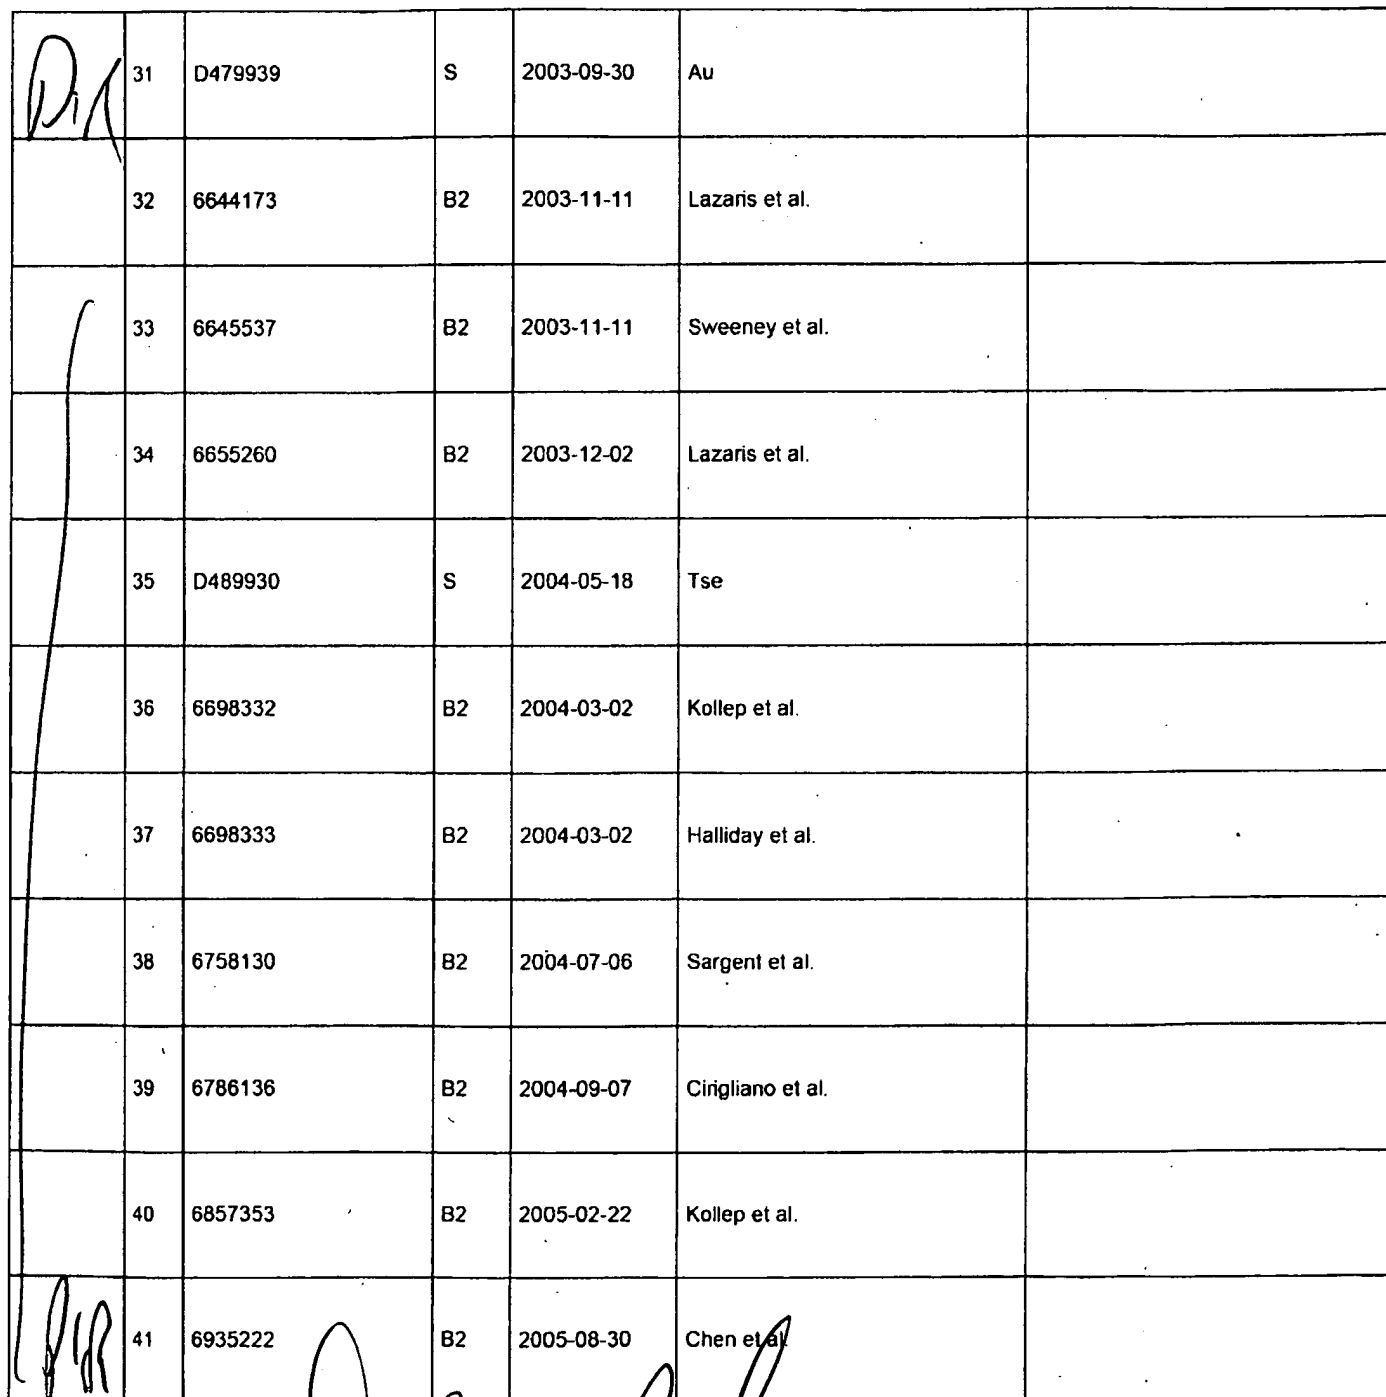 31 D479939 S 2003-09-30 Au
32 6644173 B2 2003-11-11 Lazaris et al.
33 6645537 B2 2003-11-11 Sweeney et al.
34 6655260 B2 2003-12-02 Lazaris et al.
35 D489930 S 2004-05-18 Tse
36 6698332 B2 2004-03-02 Kollep et al.
37 6698333 B2 2004-03-02 Halliday et al.
38 6758130 B2 2004-07-06 Sargent et al.
39 6786136 B2 2004-09-07 Cirigliano et al.
40 6857353 B2 2005-02-22 Kollep et al.
41 6935222 B2 2005-08-30 Chen et al.